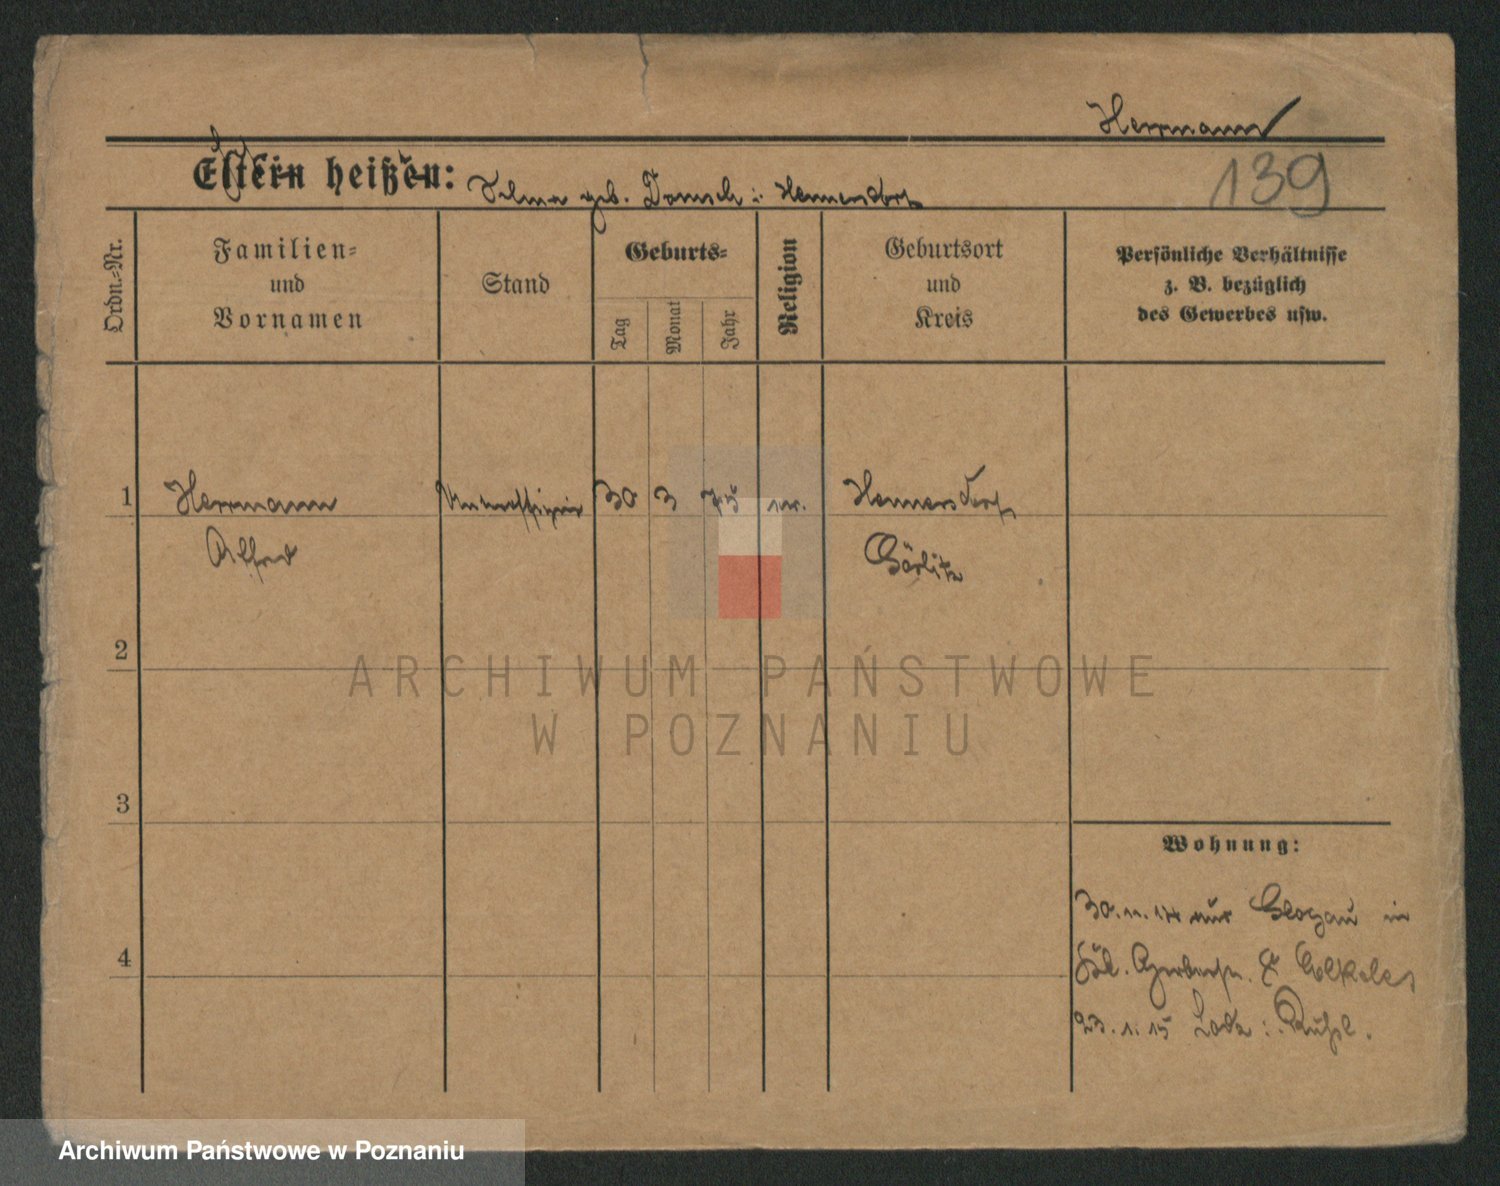 Herrmann
139
Eltern heißen: Selma geb. Domsch i: Hennersdorf
Ordn.-Nr.
Familien-
und
Vornamen
Stand
Geburts-
Tag
Monat
Jahr
Religion
Geburtsort
und
Kreis
Persönliche Verhältnisse
z. B. bezüglich
des Gewerbes usw.
1 Herrmann Unteroffizier 30 3 75 Hennersdorf
Alfred Görlitz
2
ARCHIWUM PAŃSTWOWE
W POZNANIU
3
Wohnung:
30.11.14 aus Glogau in
4
23.1.15 Lodz :
Archiwum Państwowe w Poznaniu